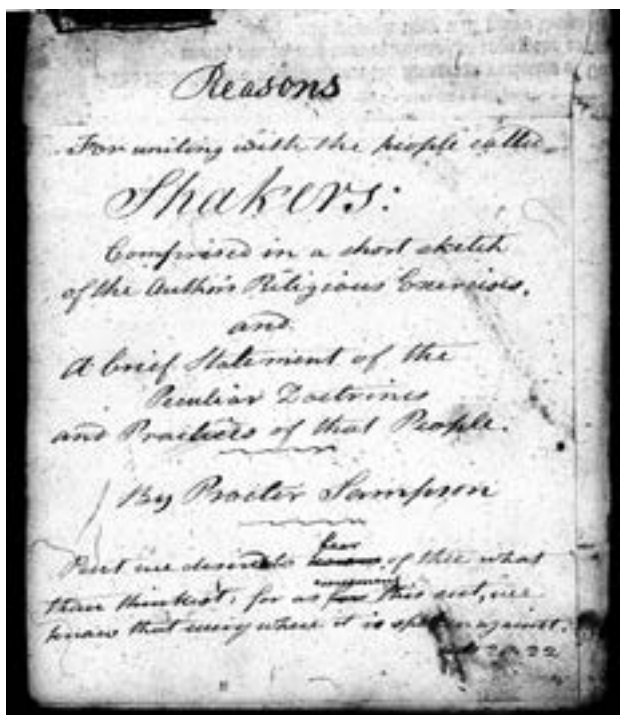 Reasons
For uniting with the people called
Shakers:
Comprised in a short sketch
of the Author's Religious Exercises,
and
A brief Statement of the
Peculiar Doctrines
and Practices of that People.
By Procter Sampson
But we desire to
hear
of thee what
thou thinkest, for as
concerning
this sect, we
know that every where it is spoken against.
22